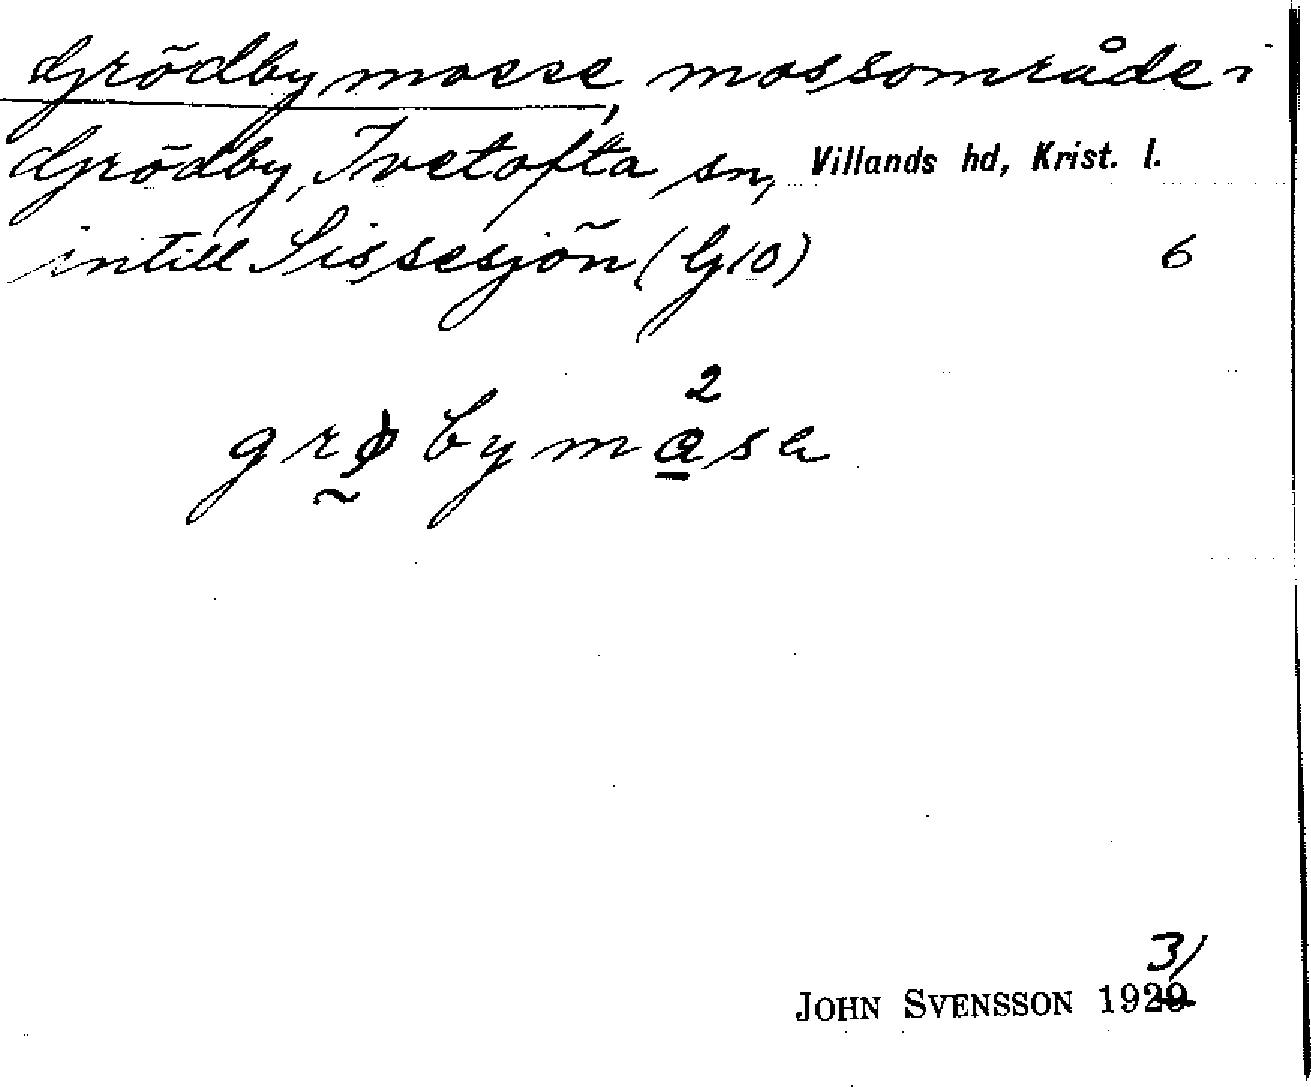 Grödby mosse, mossområde i
Grödby, Ivetofta sn, Villands hd, Krist. l.
intill Sissesjön (G10) 6
2
grøbymasa
31
JOHN SVENSSON 1929